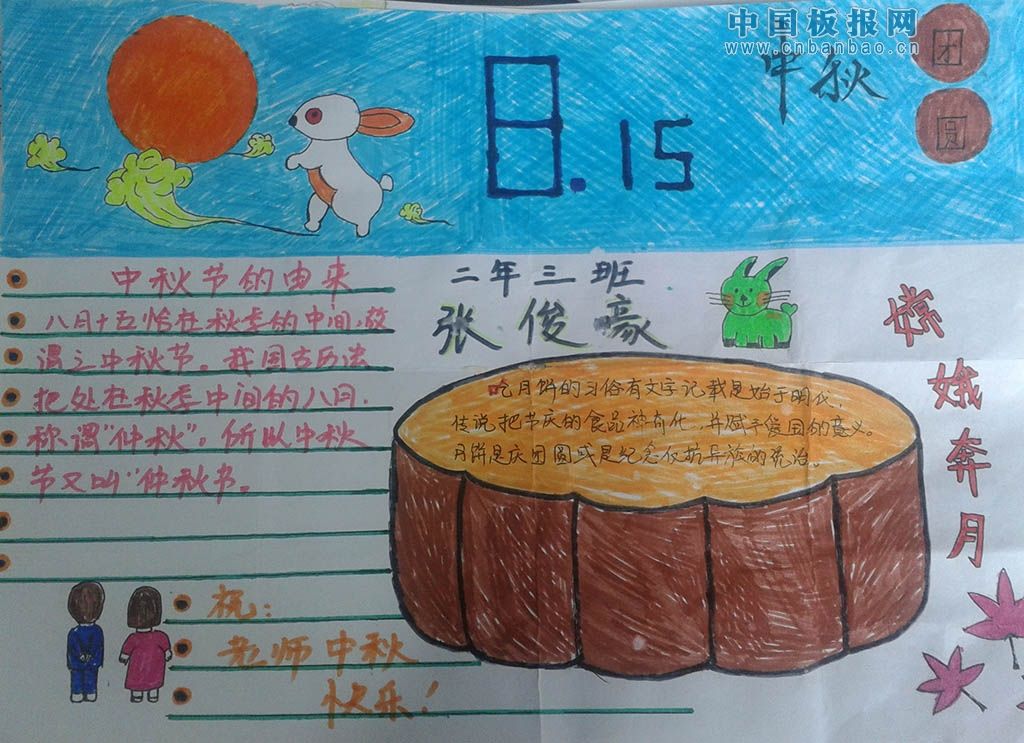 中国板报网
www.cnbanbao.cn
中秋
团
圆
8.15
中秋节的由来
八月十五恰在秋季的中间,故
谓之中秋节。我国古历法
把处在秋季中间的八月,
称谓“仲秋”,所以中秋
节又叫“仲秋节。
二年三班
张俊豪
吃月饼的习俗有文字记载是始于明代,
传说把节庆的食品神奇化,并赋予爱国的意义。
月饼是庆团圆或是纪念反抗异族的统治。
嫦娥奔月
祝:
老师中秋
快乐!